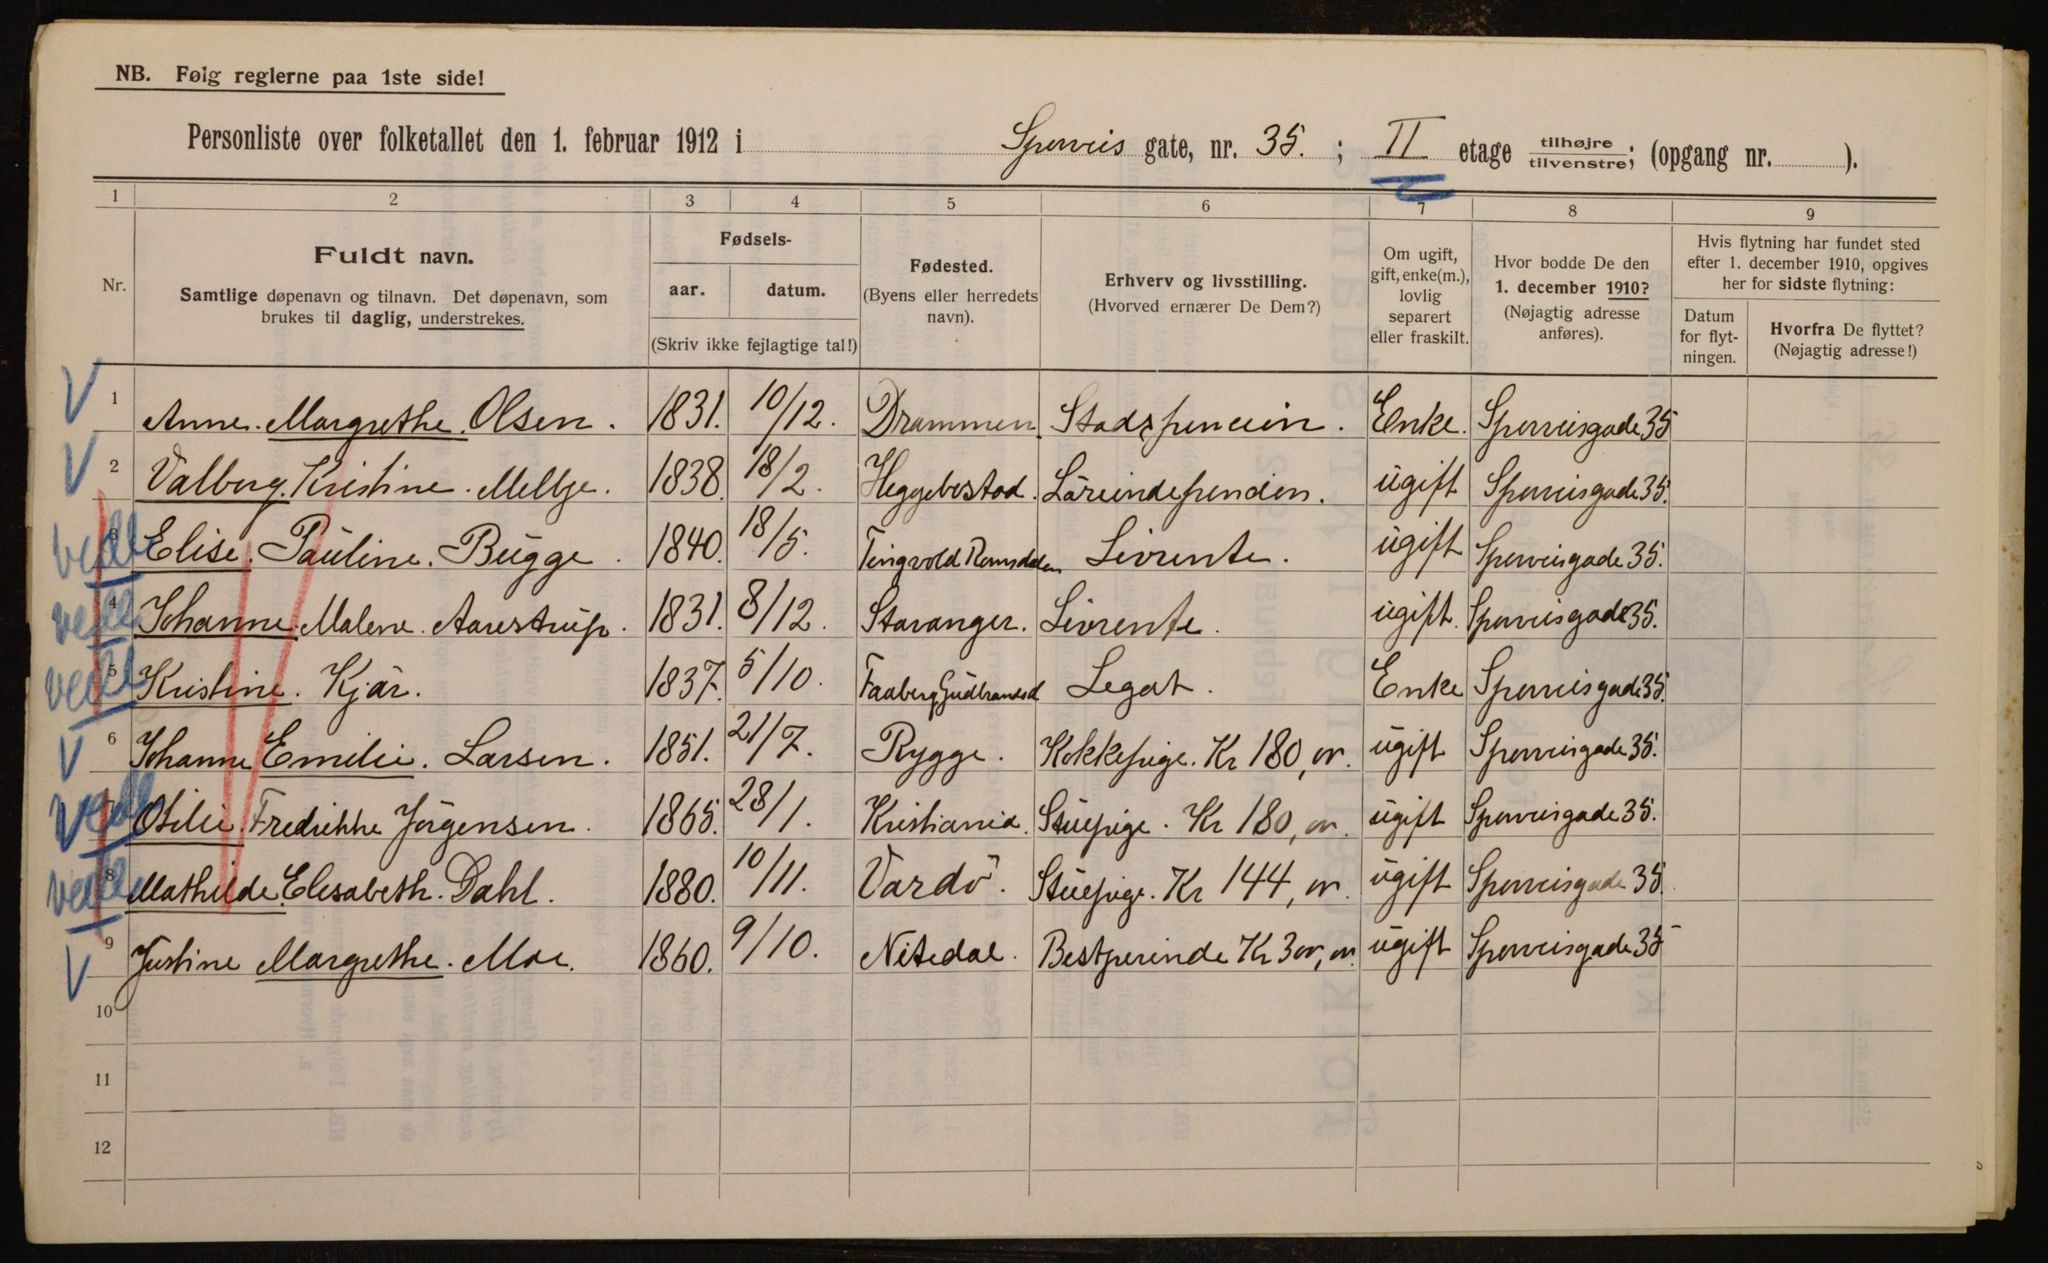 NB. Følg reglerne paa 1ste side!
Personliste over folketallet den 1. februar 1912 i Sporveis gate, nr. 35. ; II etage tilhøjre/tilvenstre; (opgang nr. ).
1 2 3 4 5 6 7 8 9
Nr.
Fuldt navn.
Samtlige døpenavn og tilnavn. Det døpenavn, som
brukes til daglig, understrekes.
Fødsels-
aar. datum.
(Skriv ikke fejlagtige tal!)
Fødested.
(Byens eller herredets
navn).
Erhverv og livsstilling.
(Hvorved ernærer De Dem?)
Om ugift,
gift, enke(m.),
lovlig
separert
eller fraskilt.
Hvor bodde De den
1. december 1910?
(Nøjagtig adresse
anføres).
Hvis flytning har fundet sted
efter 1. december 1910, opgives
her for sidste flytning:
Datum
for flyt-
ningen.
Hvorfra De flyttet?
(Nøjagtig adresse!)
V 1 Anne. Margrethe. Olsen. 1831. 10/12. Drammen. Stadspension. Enke. Sporveisgade 35
V 2 Valborg. Kristine. Melbye. 1838. 18/2. Heggebostad. ugift Sporveisgade 35.
vedb 3 Elise. Pauline. Bugge. 1840. 18/5. Tingvold Romsdalen Livrente. ugift Sporveisgade 35.
4 Johanne. Malene. Aarestrup. 1831. 8/12. Stavanger. Livrente. ugift. Sporveisgade 35.
5 Kristine. Kjär. 1837. 5/10. Faaberg Gudbrandsd Legat. Enke Sporveisgade 35.
V 6 Johanne Emilie. Larsen. 1851. 21/7. Rygge. Kokkepige. Kr 180,00. ugift Sporveisgade 35.
7 Otilie. Fredrikke Jörgensen. 1865. 28/1. Kristiania. Stuepige. Kr 180,00. ugift Sporveisgade 35.
8 Mathilde. Elisabeth. Dahl. 1880. 10/11. Vardö. Stuepige. Kr 144,00. ugift Sporveisgade 35.
V 9 Justine Margrethe. Moe. 1860. 9/10. Nitedal. Bestyrerinde Kr 300,00. ugift Sporveisgade 35
10
11
12